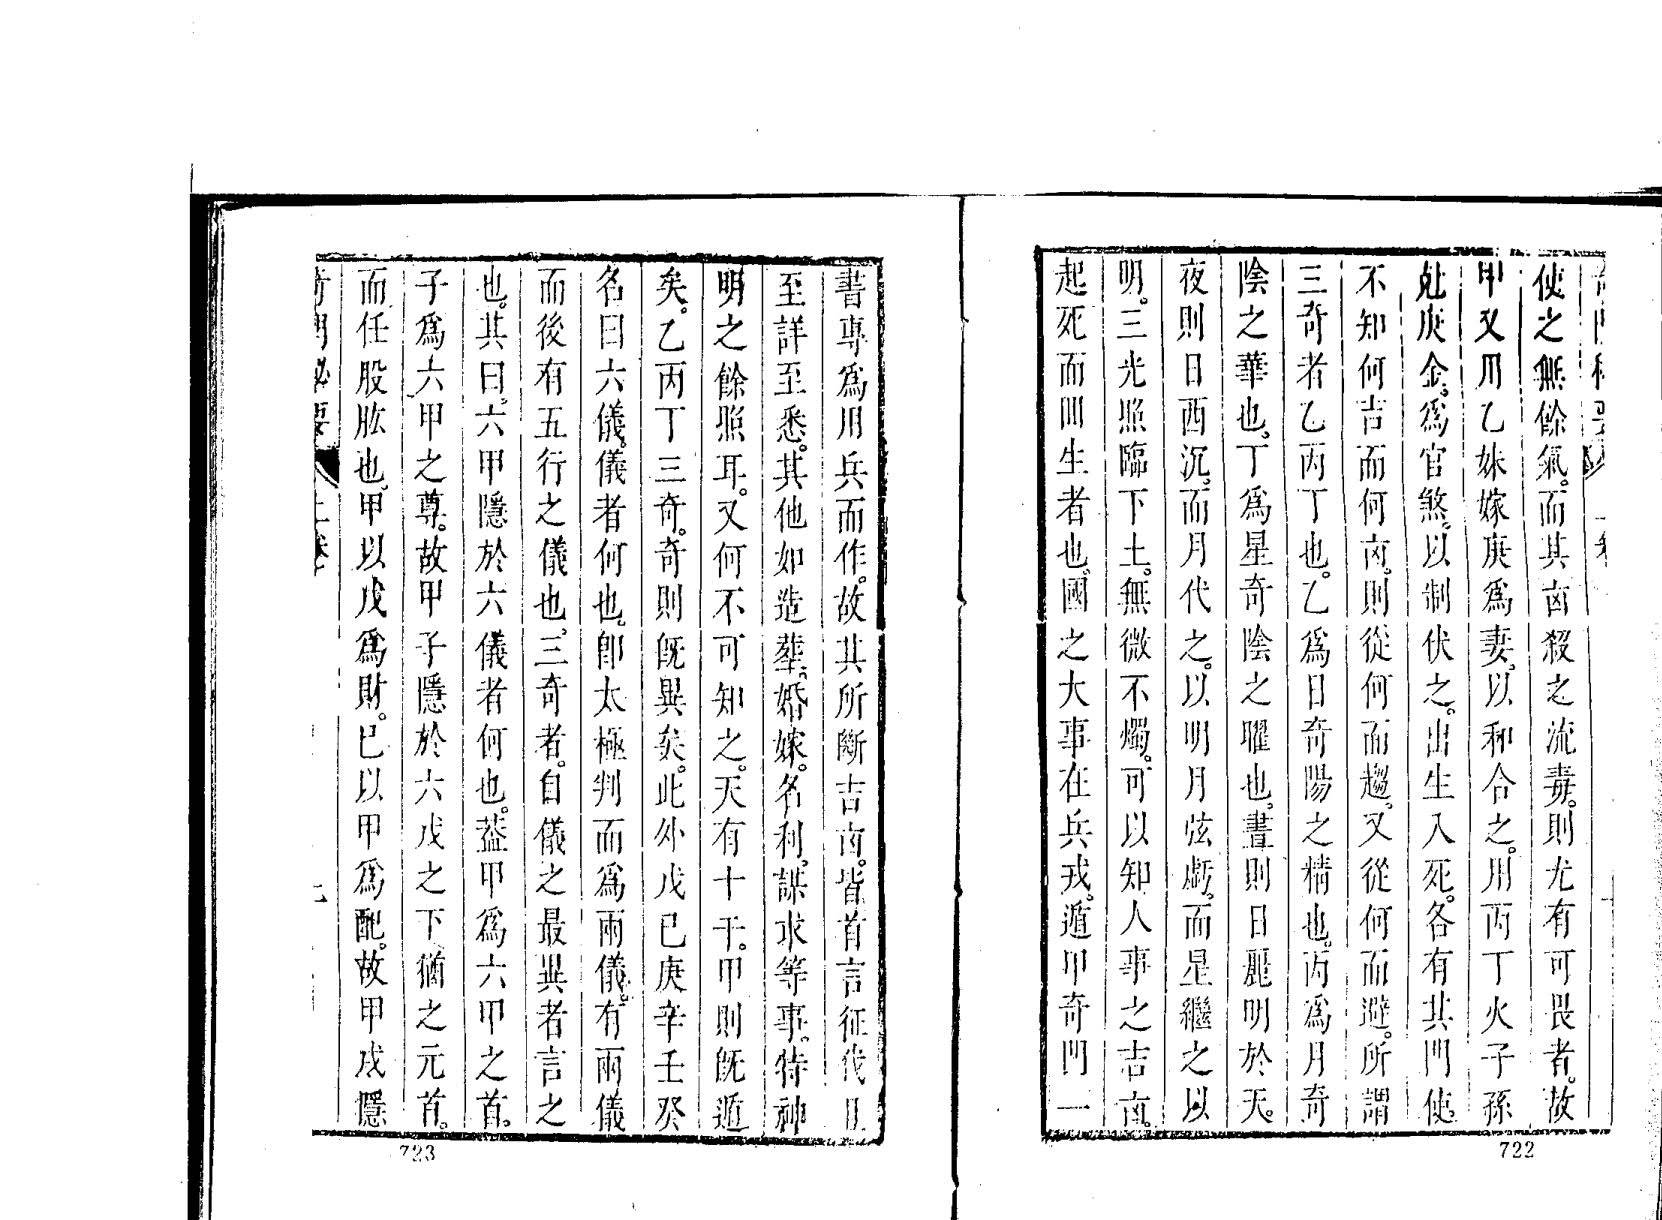 使之無餘氣。而其㐫殺之流毒。則尤有可畏者。故
甲又用乙妹嫁庚爲妻。以和合之。用丙丁火子孫
尅庚金。爲官煞。以制伏之。出生入死。各有其門使
不知何吉而何㐫。則從何而趨。又從何而避。所謂
三奇者乙丙丁也。乙爲日奇陽之精也。丙爲月奇
陰之華也。丁爲星奇陰之曜也。晝則日麗明於天。
夜則日西沉。而月代之。以明月弦虧。而星繼之以
明。三光照臨下土。無微不燭。可以知人事之吉㐫。
起死而回生者也。國之大事在兵戎。遁甲奇門一
722
書專爲用兵而作。故其所斷吉㐫。皆首言征伐且
至詳至悉。其他如造葬。婚嫁。名利。謀求等事。特神
明之餘照耳。又何不可知之。天有十干。甲則旣遁
矣。乙丙丁三奇。奇則旣異矣。此外戊已庚辛壬癸
名曰六儀。儀者何也。卽太極判而爲兩儀。有兩儀
而後有五行之儀也。三奇者。自儀之最異者言之
也。其曰。六甲隱於六儀者何也。葢甲爲六甲之首。
子爲六甲之尊。故甲子隱於六戊之下猶之元首。
而任股肱也。甲以戊爲財。已以甲爲配。故甲戌隱
奇門秘要
上卷
七
723